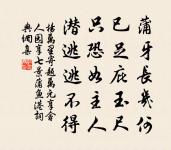 蒲牙長幾何
已足庇玉尺
只恐如主人
潛逃逃不得
楊萬里寄題萬元亨舍
人園亭七景蒲魚港詞
典網集